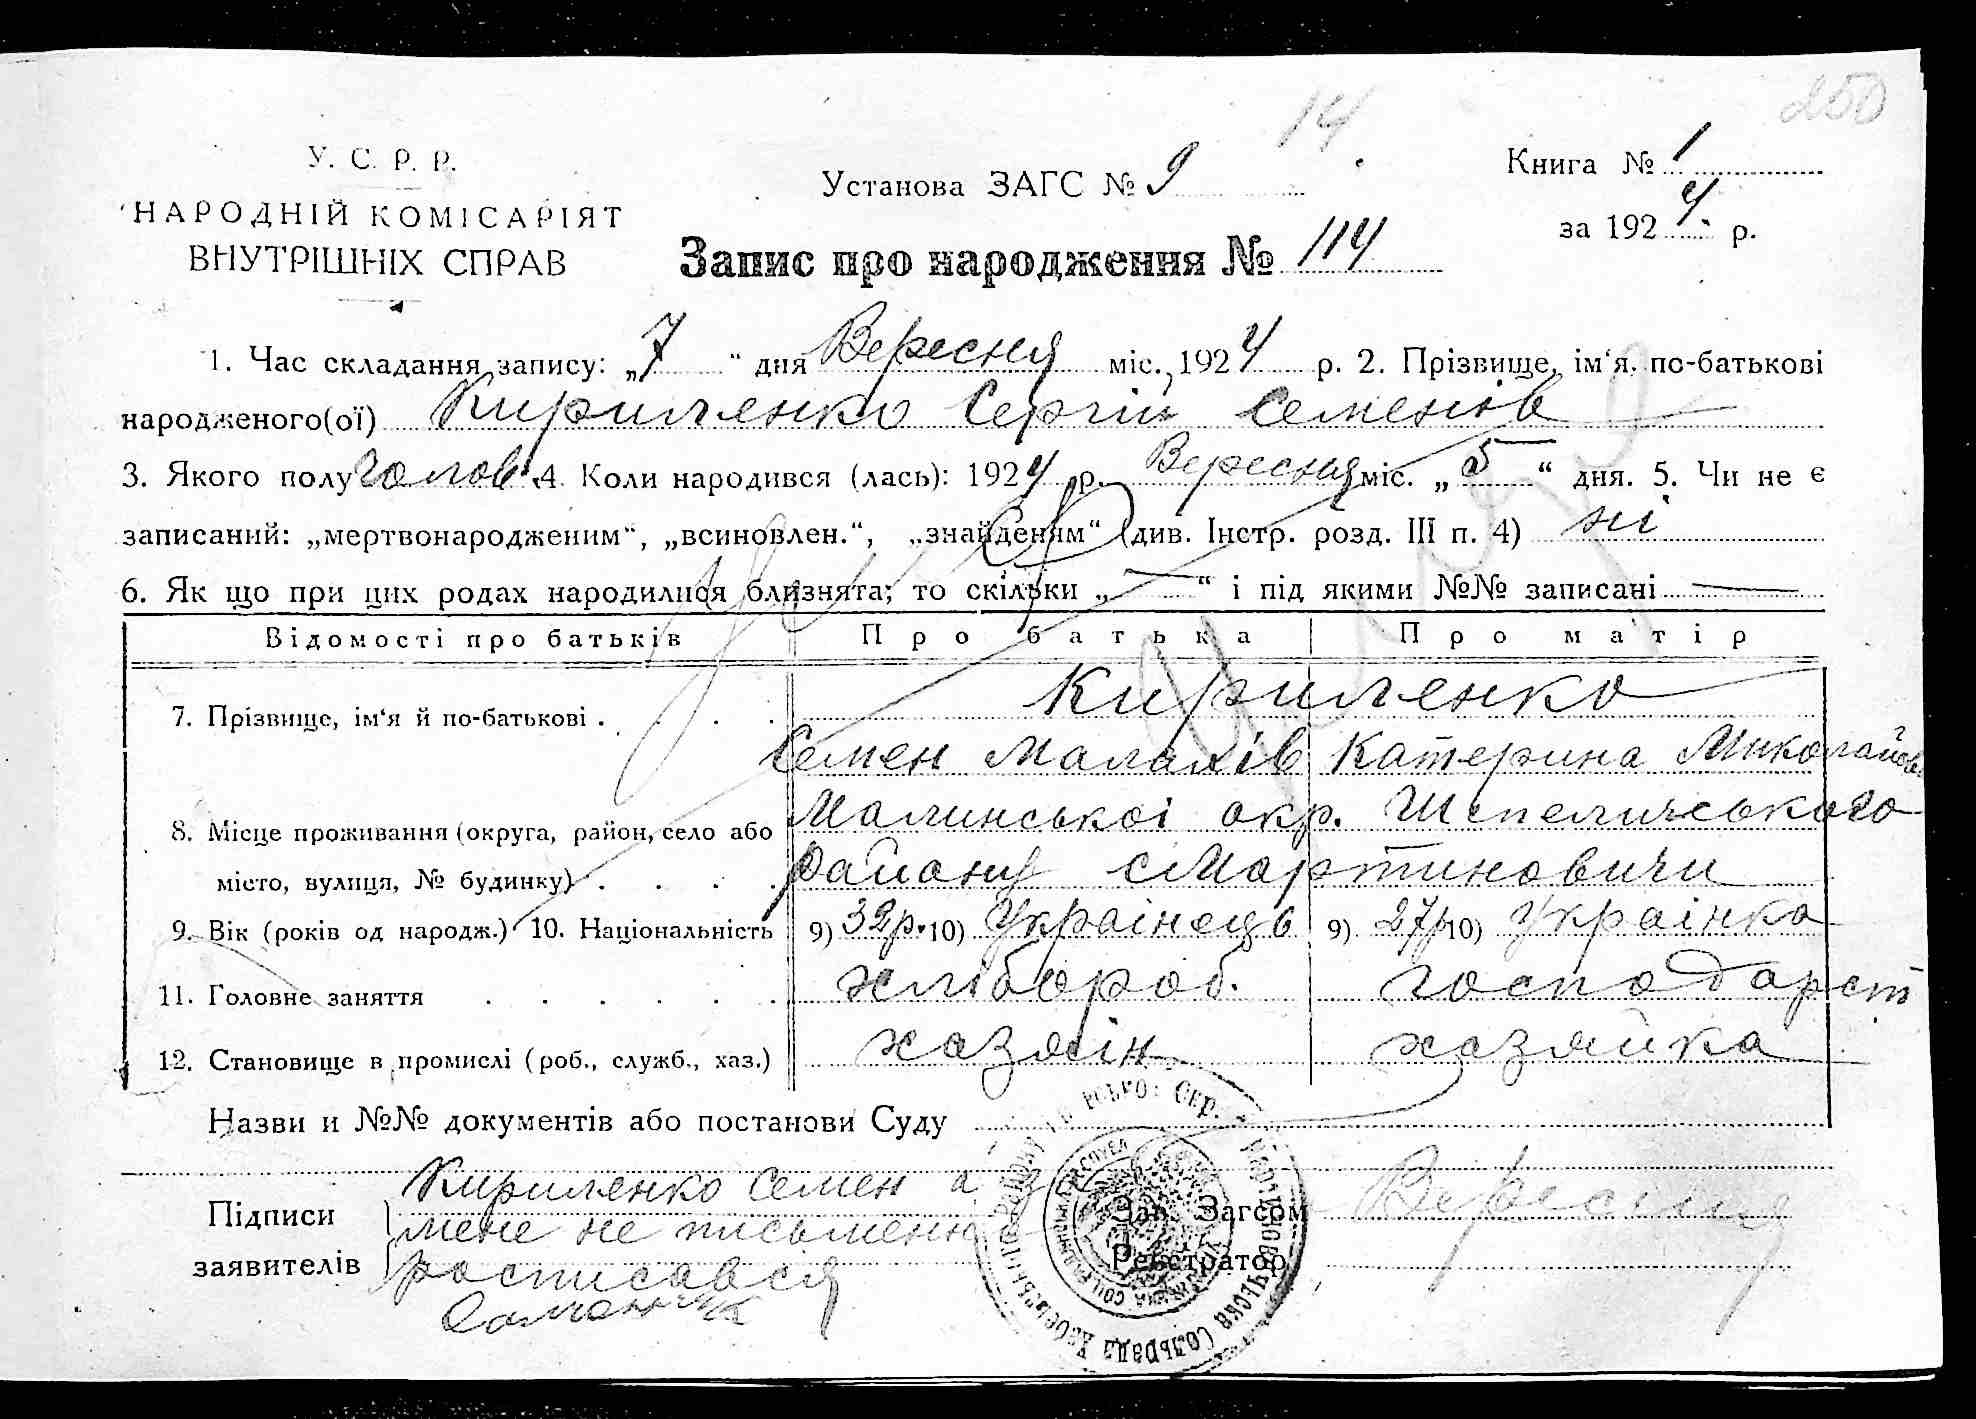 250
14
У. С. Р. Р.
НАРОДНІЙ КОМІСАРІЯТ
ВНУТРІШНІХ СПРАВ
Установа ЗАГС № 9
Книга № 1
за 1924 р.
Запис про народження № 114
1. Час складання запису: „7“ дня Вересня міс. 1924 р. 2. Прізвище, ім‘я, по-батькові
народженого(ої) Кириленко Сергій Семенів
3. Якого полу чолов. 4. Коли народився (лась): 1924 р. Вересня міс. „5“ дня. 5. Чи не є
записаний: „мертвонародженим“, „всиновлен.“, „знайденим“ (див. Інстр. розд. III п. 4) ні
6. Як що при цих родах народилися близнята; то скільки „—“ і під якими №№ записані —
Відомості про батьків Про батька Про матір
7. Прізвище, ім‘я й по-батькові . . . . Кириленко
Семен Малахів Катерина Миколаїв
8. Місце проживання (округа, район, село або Малинськоі окр. Шепеличського
місто, вулиця, № будинку) . . . . району с Мартиновичи
9. Вік (років од народж.) 10. Національність 9) 32р. 10) Украінець 9) 27р 10) Украінка
11. Головне заняття . . . . . . хлібороб. господарст
12. Становище в промислі (роб., служб., хаз.) хазяін хазяйка
Назви и №№ документів або постанови Суду
Підписи
заявителів
Кириленко Семен а за
мене не письменн
росписався
Зав. Загсом
Реєстратор